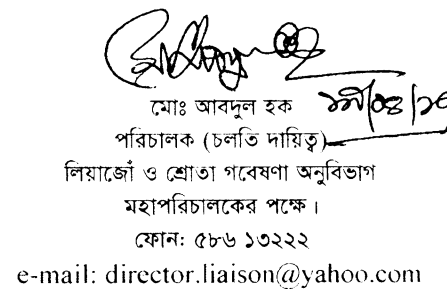 মোঃ আবদুল হক
পরিচালক (চলতি দায়িত্ব)
লিয়াজোঁ ও শ্রোতা গবেষণা অনুবিভাগ
মহাপরিচালকের পক্ষে।
ফোন: ৫৮৬ ১৩২২২
e-mail: director.liaison@yahoo.com